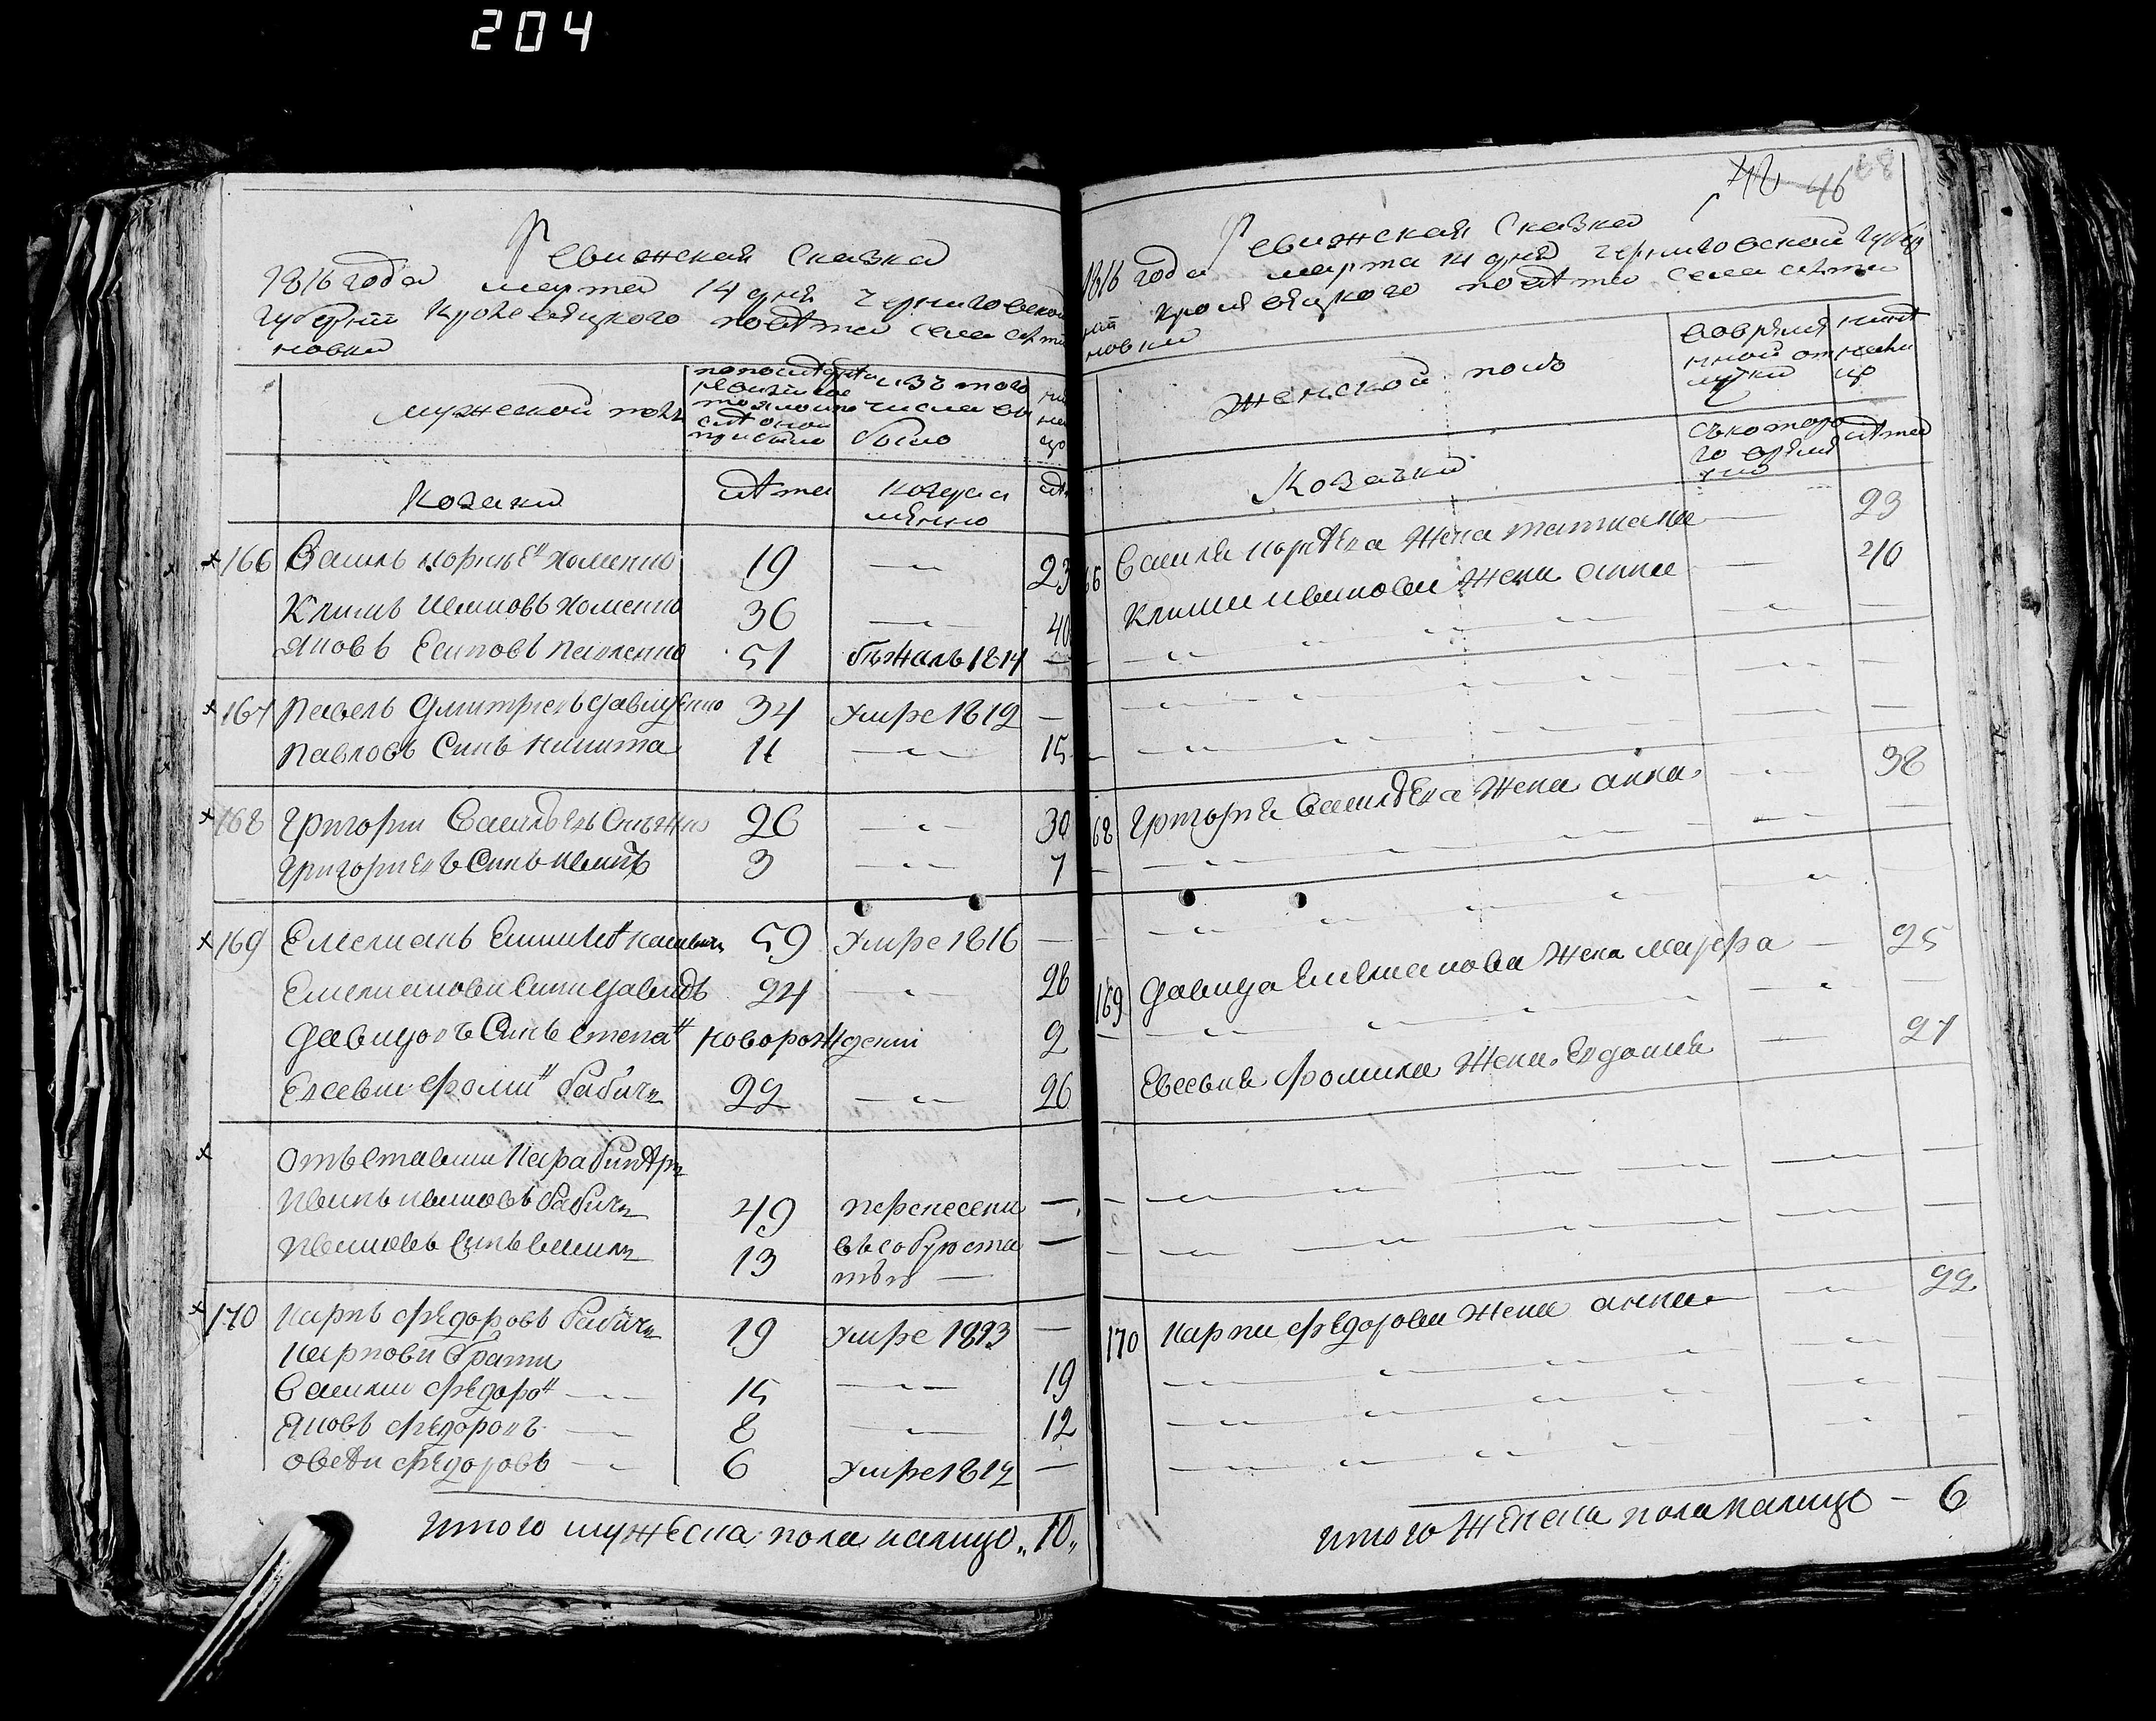 204
Ревижская Сказка
1816 года марта 14 дня Черниговской
Губернии Кролевецкого повѣта села
новки
мужеской полъ
по последней ревизии
изъ того числа вы
было
Козаки
лѣта
когда и
менно
лѣта
166 Василь Корнѣев Хоменко 19 — 23
Климъ Ивановъ Хоменко 36 — 40
Яковъ Есиповъ Павленко 51 бѣжалъ 1814 —
167 Павелъ Дмитриевъ Давиденко 34 умре 1812 —
Павловъ Синъ Никита 11 — 15
168 Григори Васильевъ 26 — 30
Григориевъ Синъ Иванъ 3 — 7
169 Емелианъ 59 умре 1816 —
Емелианова Синъ Давидъ 24 — 28
Давидовъ Синъ Степа новорожденни 2
Евсеви Фоми Бабичъ 22 — 26
Отъставши Карабинѣръ
Иванъ Ивановъ Бабичъ 49 перенесенъ —
Ивановъ Синъ Василь 13 въ собу ста —
тью —
170 Карпъ Федоровъ Бабичъ 19 умре 1813 —
Карпови брати
Василь Федоро — 15 — 19
Яковъ Федоровъ — 8 — 12
Федоровъ — 6 умре 1812 —
Итого мужеска пола налицо „10„
46
Ревижская Сказка
1816 года марта 14 дня Черниговской Губер
нии Кролевецкого повѣта села
новки
Женской полъ
во временной отлучки
налицо
Козачки
съ которого времяни
лѣта
66 Василя Корнѣева жена Татиана — 23
Клима Иванова жена Анна — 40
68 Григория Василѣева жена Анна — 38
169 Давида Емелианова жена Марфа — 25
Евсевия Фомина жена Евдокия — 27
170 Карпа Федорова жена Анна — 22
Итого женска пола налицо — 6